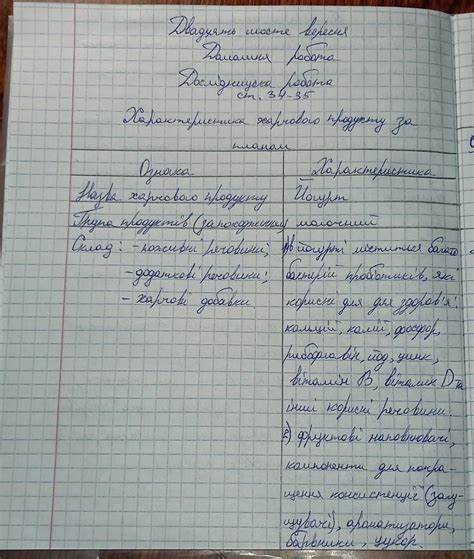 Двадцять шосте вересня
Домашня робота
Дослідницька робота
ст. 34-35
Характеристика харчового продукту за
планом
Ознака
Характеристика
Назва харчового продукту
Йогурт
Група продуктів (за походженням)
молочний
Склад: - поживні речовини;
- додаткові речовини;
- харчові добавки
1) в йогурті міститься багато
бактерій пробіотиків, які
корисні для для здоров'я:
кальцій, калій, фосфор,
рибофлавін, йод, цинк,
вітамін B, вітамін D та
інші корисні речовини.
2) фруктові наповнювачі,
компоненти для покра-
щення консистенції (загу-
щувачі), ароматизатори,
барвники, цукор.